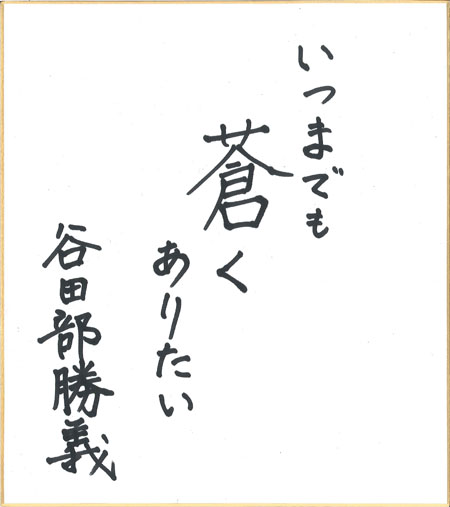 いつまでも
蒼く
ありたい
谷田部勝義